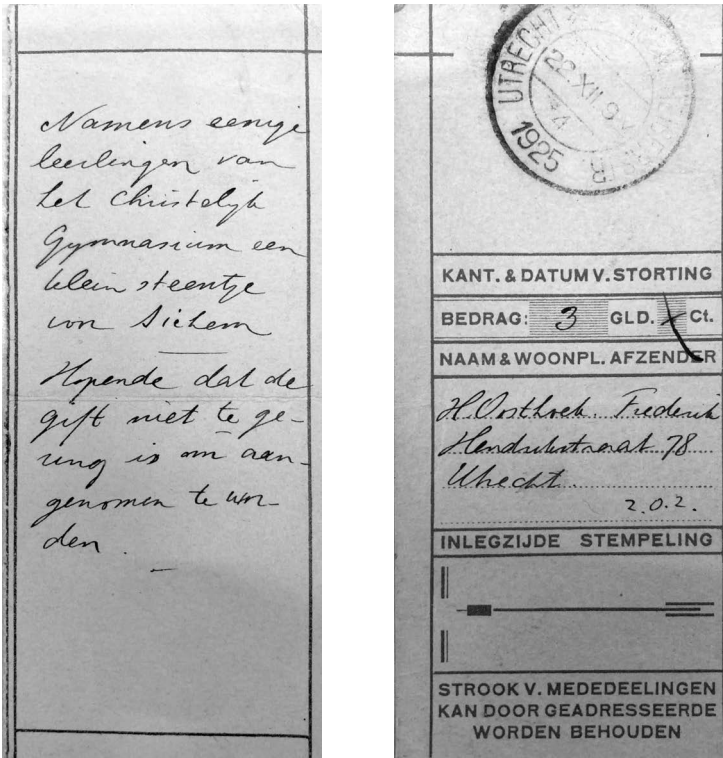 Namens eenige
leerlingen van
het Christelijk
Gymnasium een
klein steentje
voor Sichem
Hopende dat de
gift niet te ge-
ring is om aan-
genomen te wor-
den.
UTRECHT
22.XII.9-V
4
1925
KANT. & DATUM V. STORTING
BEDRAG: 3 GLD. Ct.
NAAM & WOONPL. AFZENDER
H. Oosthoek. Frederik
Hendrikstraat 78
Utrecht.
2.0.2.
INLEGZIJDE STEMPELING
STROOK V. MEDEDEELINGEN
KAN DOOR GEADRESSEERDE
WORDEN BEHOUDEN